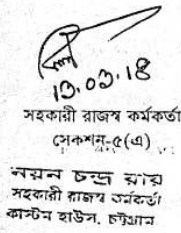 13.03.18
সহকারী রাজস্ব কর্মকর্তা
সেকশন-৫(এ)
নয়ন চন্দ্র রায়
সহকারী রাজস্ব কর্মকর্তা
কাস্টম হাউস, চট্টগ্রাম